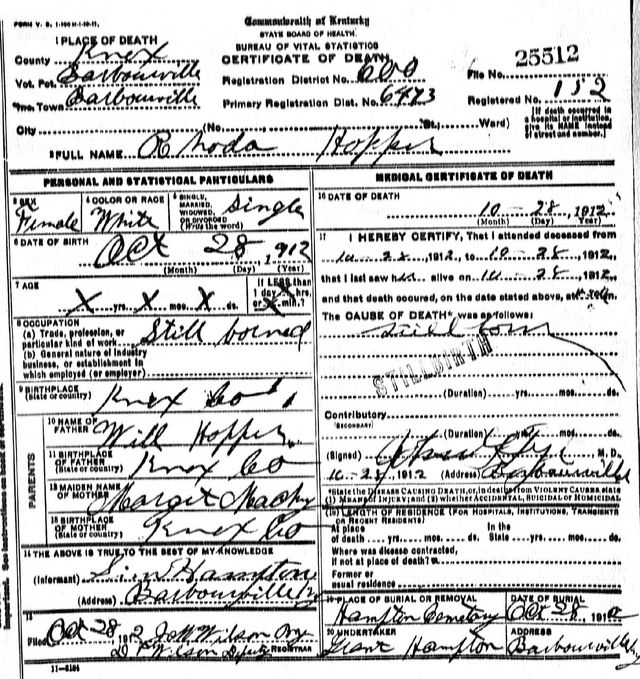 FORM V. S. 1-100 M-1-19-11.
Commonwealth of Kentucky
STATE BOARD OF HEALTH.
BUREAU OF VITAL STATISTICS
CERTIFICATE OF DEATH
1 PLACE OF DEATH
County Knox
Vot. Pct. Barbourville
Inc. Town Barbourville
Registration District No. 600
Primary Registration Dist. No. 6473
File No. 25512
Registered No. 152
[If death occurred in a hospital or institution, give its NAME instead of street and number.]
City (No., St.; Ward)
2 FULL NAME Rhoda Hopper
PERSONAL AND STATISTICAL PARTICULARS
3 SEX Female
4 COLOR OR RACE White
5 SINGLE, MARRIED, WIDOWED, OR DIVORCED (Write the word) Single
6 DATE OF BIRTH Oct 28, 1912
(Month) (Day) (Year)
7 AGE X yrs. X mos. X ds.
If LESS than 1 day X hrs. or X min.?
8 OCCUPATION
(a) Trade, profession, or particular kind of work Still borned
(b) General nature of industry business, or establishment in which employed (or employer)
9 BIRTHPLACE (State or country) Knox Co
PARENTS
10 NAME OF FATHER Will Hopper
11 BIRTHPLACE OF FATHER (State or country) Knox Co
12 MAIDEN NAME OF MOTHER Margit
13 BIRTHPLACE OF MOTHER (State or country) Knox Co
14 THE ABOVE IS TRUE TO THE BEST OF MY KNOWLEDGE
(Informant) Hampton
(Address) Barbourville Ky
15
Filed Oct 28 1912 J W Wilson
Wilson Deputy REGISTRAR
11-8184
MEDICAL CERTIFICATE OF DEATH
16 DATE OF DEATH
10-28, 1912
(Month) (Day) (Year)
17 I HEREBY CERTIFY, That I attended deceased from
10-28, 1912, to 10-28, 1912
that I last saw her alive on 10-28, 1912
and that death occured, on the date stated above, at m.
The CAUSE OF DEATH* was as follows:
Still born
STILLBIRTH
(Duration) yrs. mos. ds.
Contributory
(SECONDARY)
(Duration) yrs. mos. ds.
(Signed) M. D.
10-28, 1912 (Address) Barbourville
*State the DISEASE CAUSING DEATH, or, in deaths from VIOLENT CAUSES, state (1) MEANS OF INJURY; and (2) whether ACCIDENTAL, SUICIDAL or HOMICIDAL
18 LENGTH OF RESIDENCE (FOR HOSPITALS, INSTITUTIONS, TRANSIENTS OR RECENT RESIDENTS)
At place of death yrs. mos. ds. In the State yrs. mos. ds.
Where was disease contracted, if not at place of death?
Former or usual residence
19 PLACE OF BURIAL OR REMOVAL Hampton Cemetery
DATE OF BURIAL Oct 28, 1912
20 UNDERTAKER Grant Hampton
ADDRESS Barbourville Ky